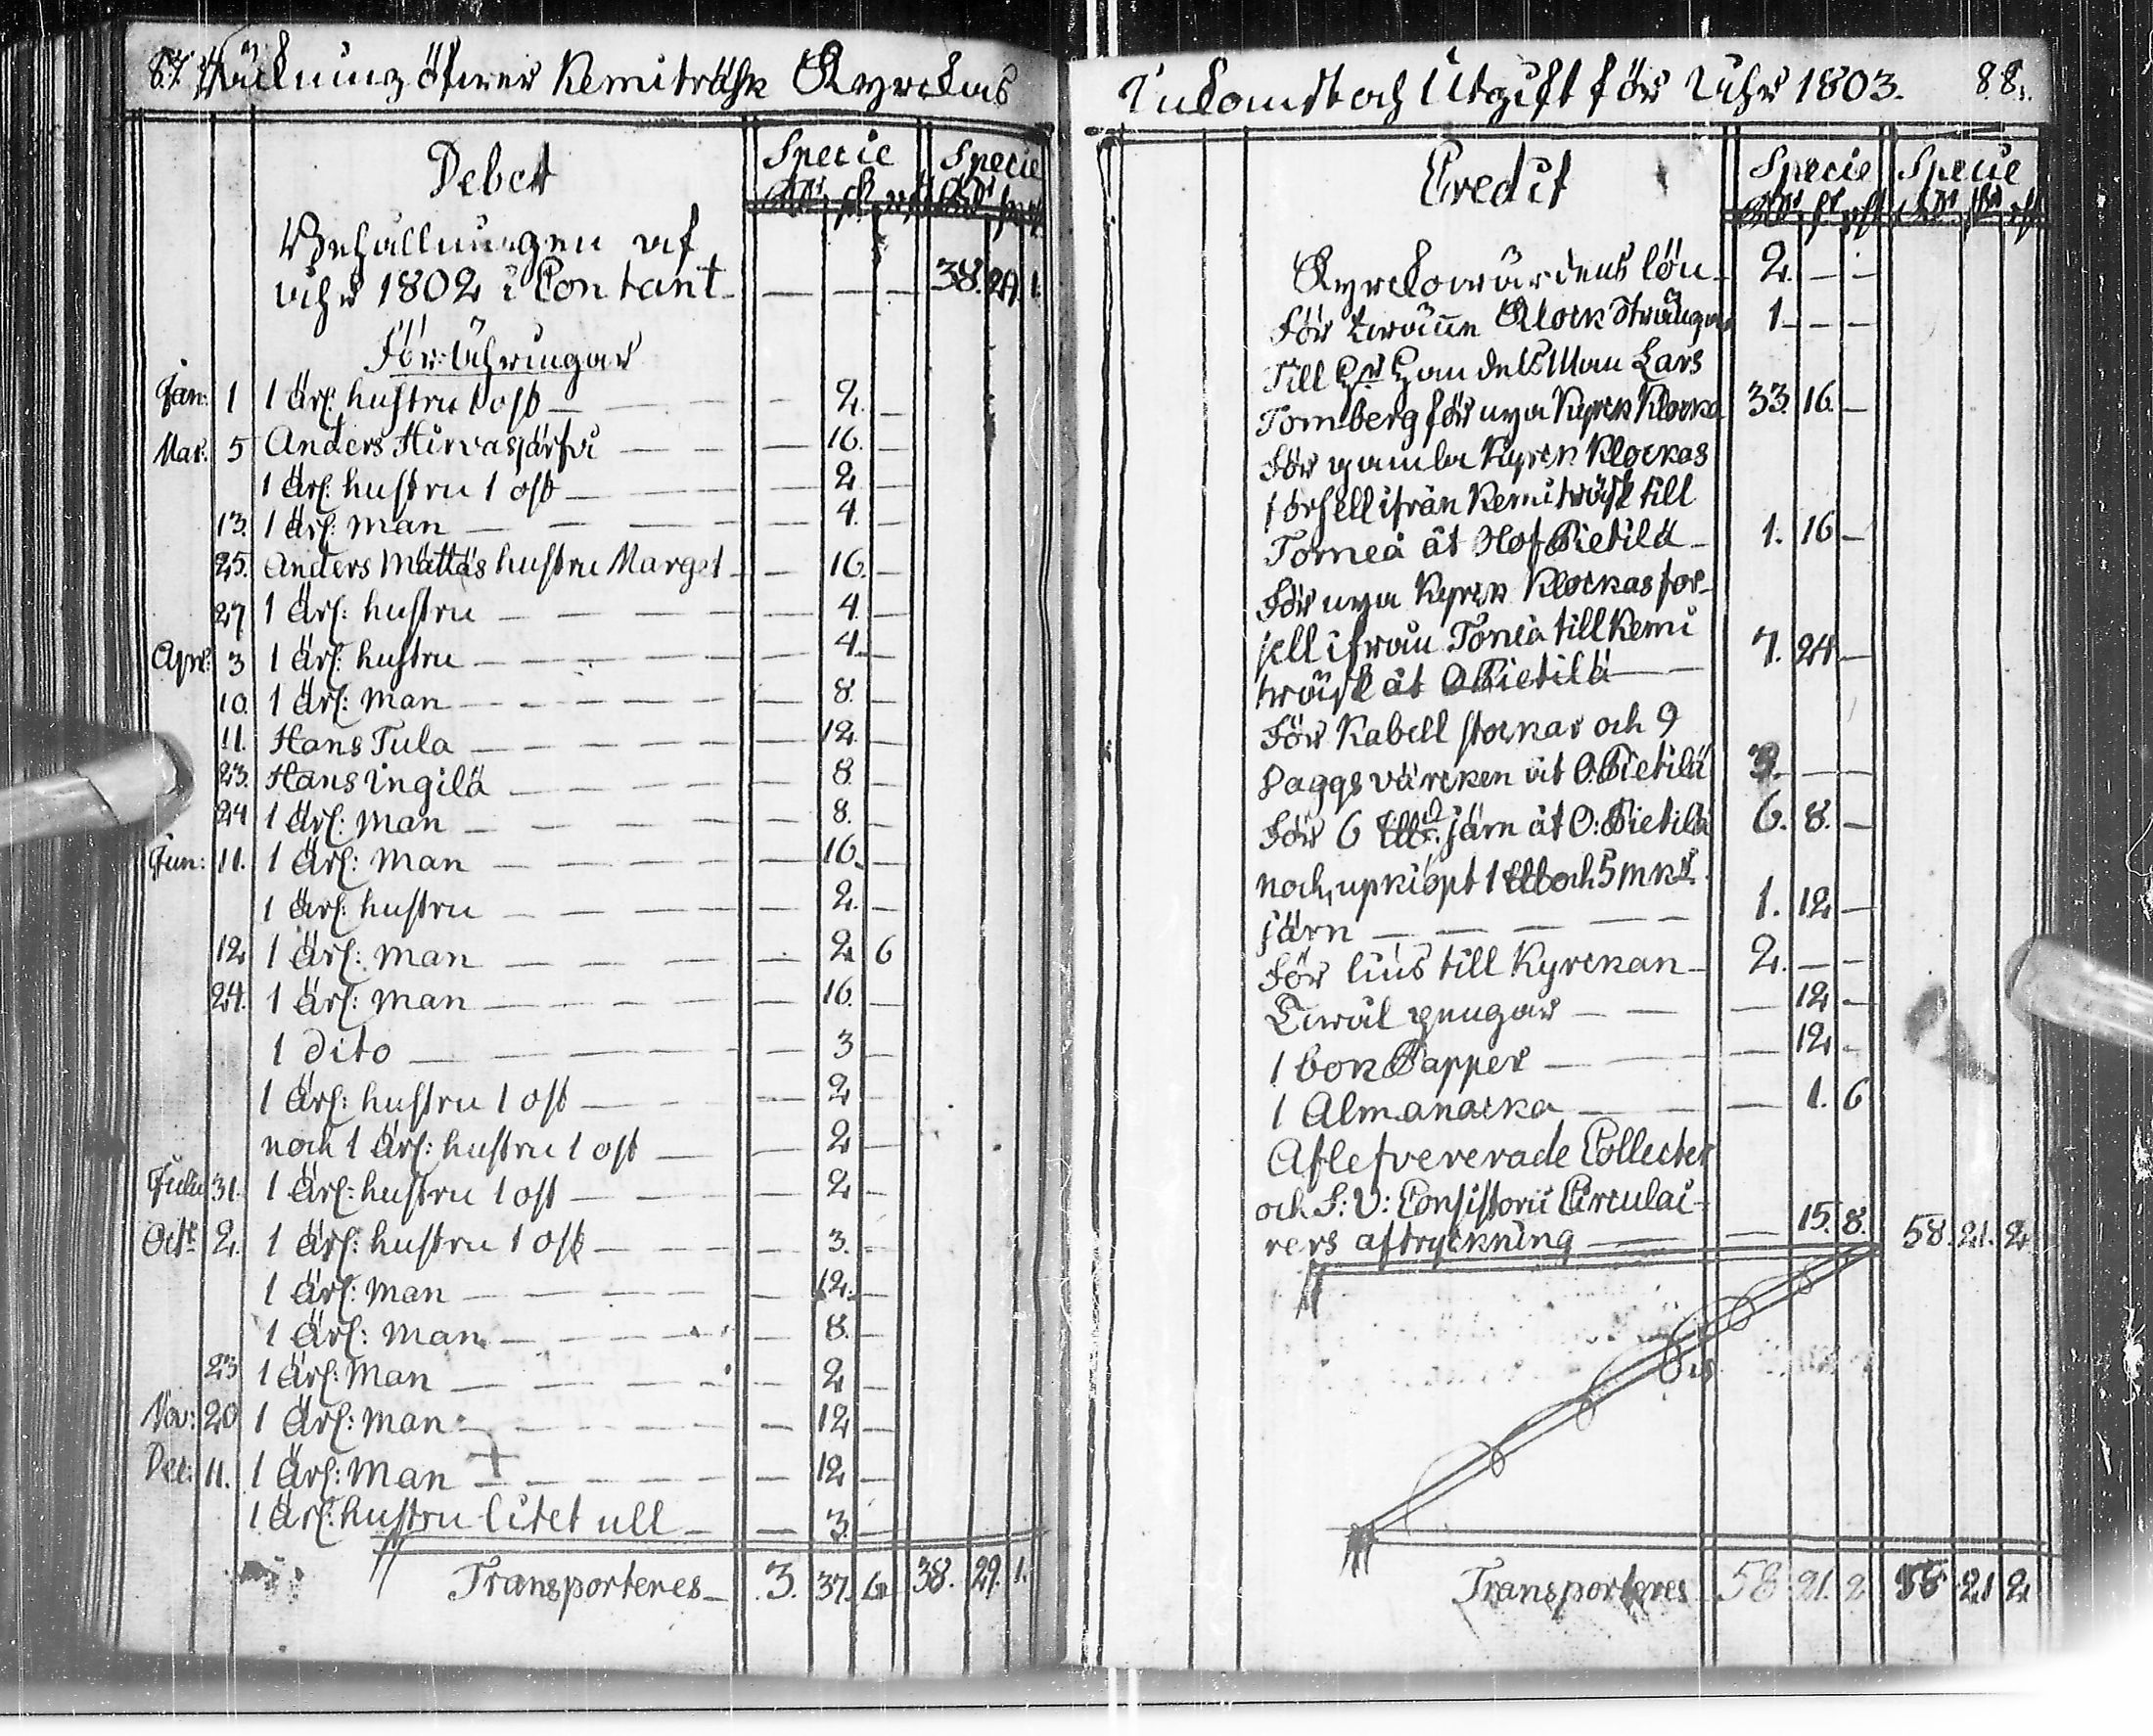 87. Räkning öfwer Kemiträsk Kyrckas
Debet Specie Specie
Rdr sk rst Rdr sk rst
Behållningen af
åhr 1802 i Contant — — — 38. 29. 1.
Förähringar
Jan: 1 1 ärl: hustru 1 ost — 2. —
Mar: 5 Anders Hirvasjärfvi — 16. —
1 ärl: hustru 1 ost — 2 —
13. 1 ärl: man — 4. —
25. Anders Mattas hustru Marget — 16. —
27 1 ärl: hustru — 4. —
Apr: 3 1 ärl: hustru — 4. —
10. 1 ärl: man — 8. —
11. Hans Tula — 12. —
23. Hans ingilä — 8. —
24 1 ärl: man — 8. —
Jun: 11. 1 ärl: man — 16. —
1 ärl: hustru — 2. —
12 1 ärl: man — 2 6
24. 1 ärl: man — 16. —
1 dito — 3 —
1 ärl: hustru 1 ost — 2 —
noch 1 ärl: hustru 1 ost — 2 —
Julii 31. 1 ärl: hustru 1 ost — 2 —
Octr 2. 1 ärl: hustru 1 ost — 3. —
1 ärl: man — 12. —
1 ärl: man — 8. —
23 1 ärl: man — 2 —
Nov: 20 1 ärl: man — 12 —
Dec: 11. 1 ärl: man — 12 —
1 ärl: hustru litet ull — 3. —
Transporteres — 3. 37. 6 38. 29. 1.
Inkomst och Utgift för Åhr 1803. 88.
Credit Specie Specie
Rdr sk rst Rdr sk rst
Kyrckowärdens lön — 2. — —
För twänne Klockstränger 1 — — —
Till Hr Handelsman Lars
Tornberg för nya Kyrck Klocka 33. 16. —
För gamla Kyrck Klockas
forsell ifrån Kemiträsk till
Torneå åt Olof Pietilä — 1. 16 —
För nya Kyrck Klockas for-
sell ifrån Torneå till Kemi
träsk åt O Pietilä — 7. 24 —
För Kabell stockar och 9
Daggsvärcken åt O. Pietilä 3. — —
För 6 järn åt O: Pietilä 6. 8. —
noch, upkiöpt 1 och 5 mkr
järn — — — — 1. 12 —
För lius till Kyrckan — 2. — —
Twål pengar — — 12 —
1 bok Papper — — 12 —
1 Almanacka — — 1. 6
Aflefvererade Collecter
och S: V: Consistorii Circulai-
rers aftryckning — — 15. 8. 58. 21. 2
Transporteres 58 21. 2 58 21 2